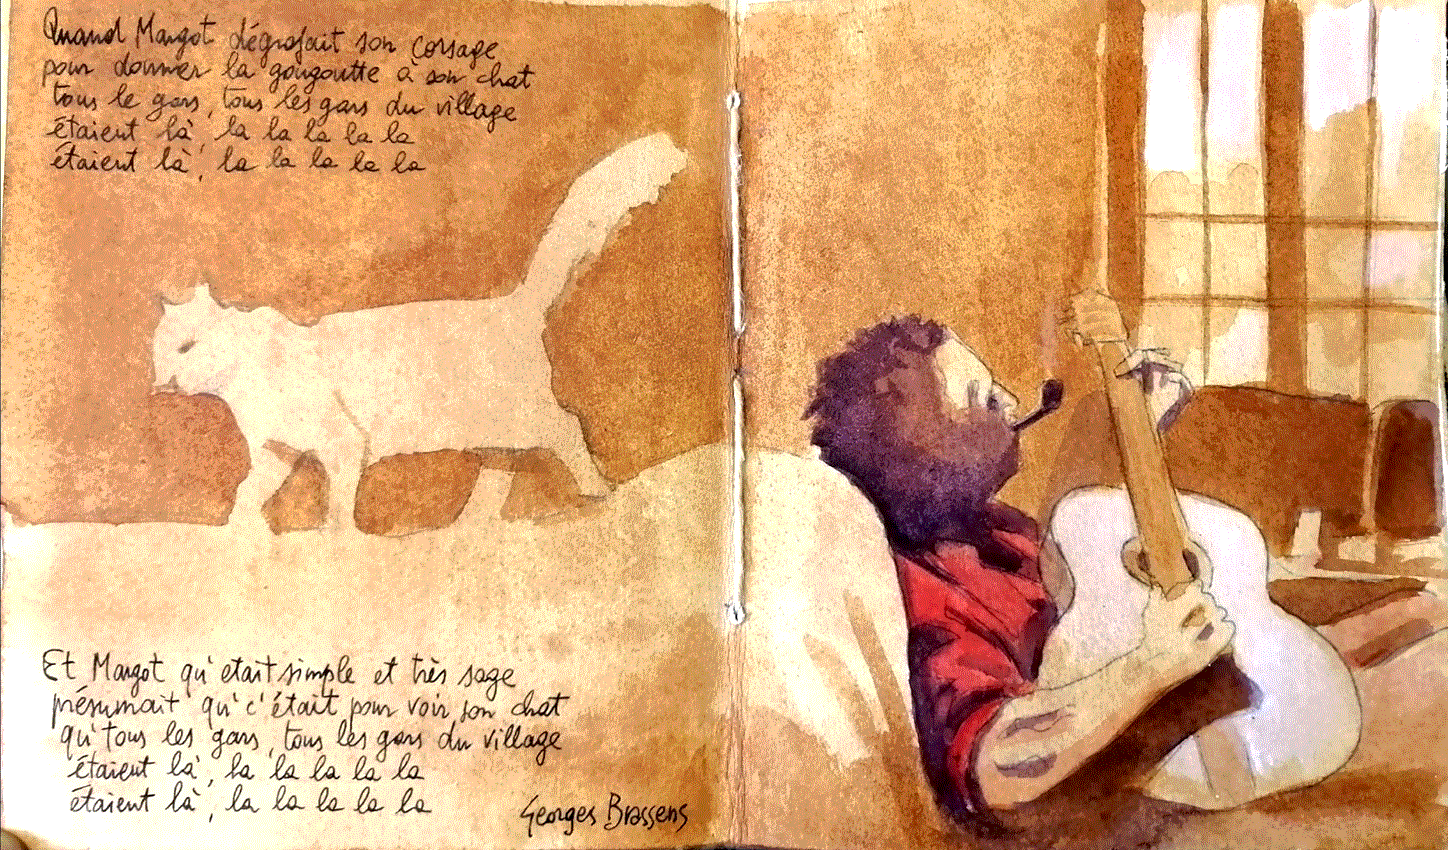 Quand Margot dégrafait son corsage
pour donner la gougoutte à son chat
tous le gars, tous les gars du village
étaient là, la la la la la
étaient là, la la la la la
Et Margot qu'etait simple et très sage
présumait qu'c'était pour voir son chat
qu'tous les gars, tous les gars du village
étaient là, la la la la la
étaient là, la la la la la
Georges Brassens